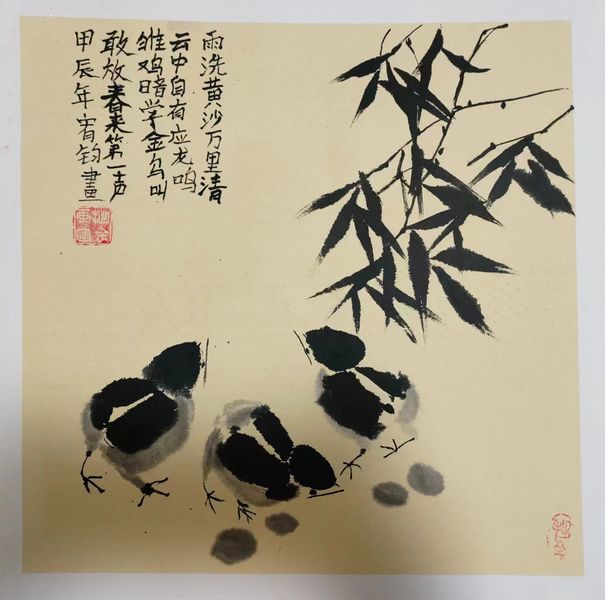 雨洗黄沙万里清
云中自有应龙鸣
雏鸡暗学金乌叫
敢效春来第一声
甲辰年宥钧畫